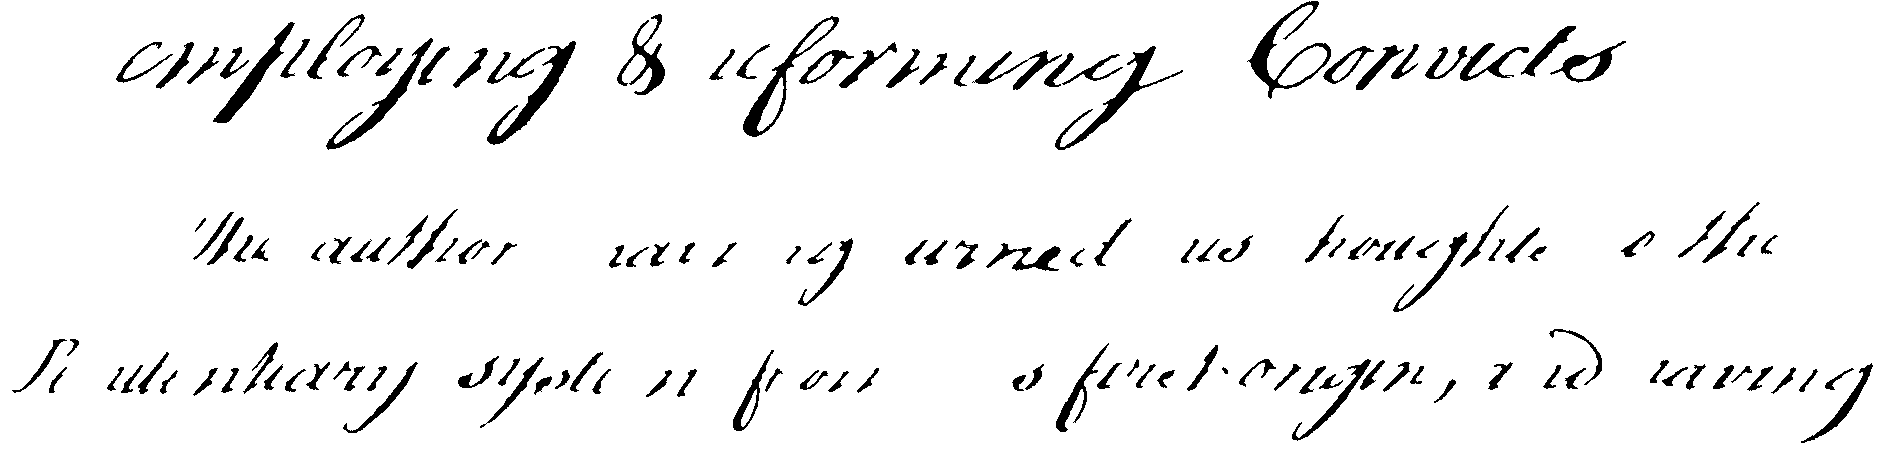 employing & reforming Convicts
The author having turned his thoughts to the
Penitentiary system from its first origin, and having